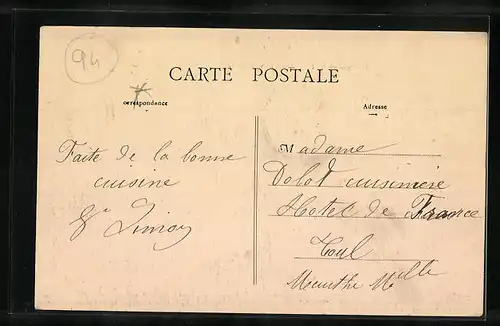 94
CARTE POSTALE
Correspondance
Adresse
Madame
Faite de la bonne
cuisine
Dolot cuisiniere
Hotel de France
Toul
Meurthe Mlle